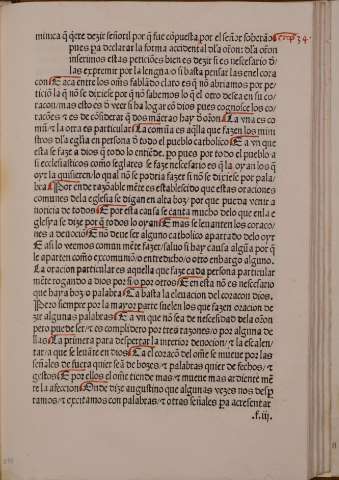 nunca q̃ q̃ere dezir señor/ por q̃ fue cõpuesta por el señor soberão
pues ya declarar la forma accidental dla oriõn: dla oriõn
inserimos estas peticiões bien es dezir si es nescesario d̃
las expremir por la lengua/ o si basta pensar las en el cora
con E aca entre los oms fablãdo claro es q̃ no abriamos por pe
ticiõ la q̃ no se diziese por q̃ no sabemos lo q̃ el otro desea en su co
racon/ mas esto en d̃ veer si ha logar cõ dios pues cognosce los co
racões & es de cõsiderar q̃ dos mãeras hay d̃ oriõn La vna es co
mũ/& la otra es particular La comũ es aq̃lla que fazen los minis
tros dla eglia en persona d̃ todo el pueblo catholico E a vn que
esta se faze a dios q̃ todo lo entiẽde. pero pues por todo el pueblo a
si ecclesiasticos como seglares se faze nescesario es q̃ la oyan los q̃
oyr la quisieren/ lo qual nõ se podria fazer si nõ se diziese por pala
bra Por ende razõable mẽte es establescido que estas oraciones
comunes dela eglesia se digan en alta boz/ por que pueda venir a
noticia de todos E por esta causa se canta mucho delo que en la e
glesia se dize por q̃ todos lo oyan E mas se leuanten los coraco/
nes a deuocio E nõ deue ser alguno catholico apartado delo oyr
E asi lo veemos comun mẽte fazer/ saluo si hay causa algũa por q̃
le aparten como excomuniõ/ o entredicho/ o otro enbargo alguno.
La oracion particular es aquella que faze cada persona particular
mẽte rogando a dios por si/ o por otros E en esta nõ es nescesario
que haya boz o palabra Ca basta la eleuacion del coracon dios.
Pero siempre por la mayor parte suelen los que fazen oracion de
zir algunas palabras E a vn que nõ sea de necesidad dela oriõn
pero puede ser/ & es complidero por tres razones/ o por alguna de
llas La primera para despertar la interior deuocion/ & la escalen/
tar/ a que se leuãte en dios Ca el coracõ del ome se mueue por las
señales de fuera quier seã de bozes/ & palabras quier de fechos/ &
gestos E por ellos el ome tiende mas & mueue mas ardiente mẽ
te la afeccion Onde dize augustino que algunas vezes nos desp̃
tamos/ & excitamos con palabras/ & otras señales para acresentar
.f.iii.